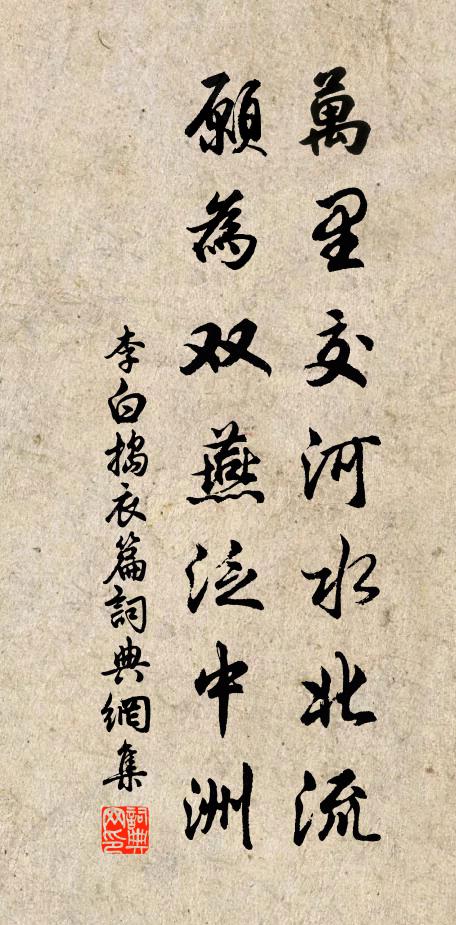 萬里交河水北流
願為双燕泛中洲
李白搗衣篇詞典網集
詞典网印